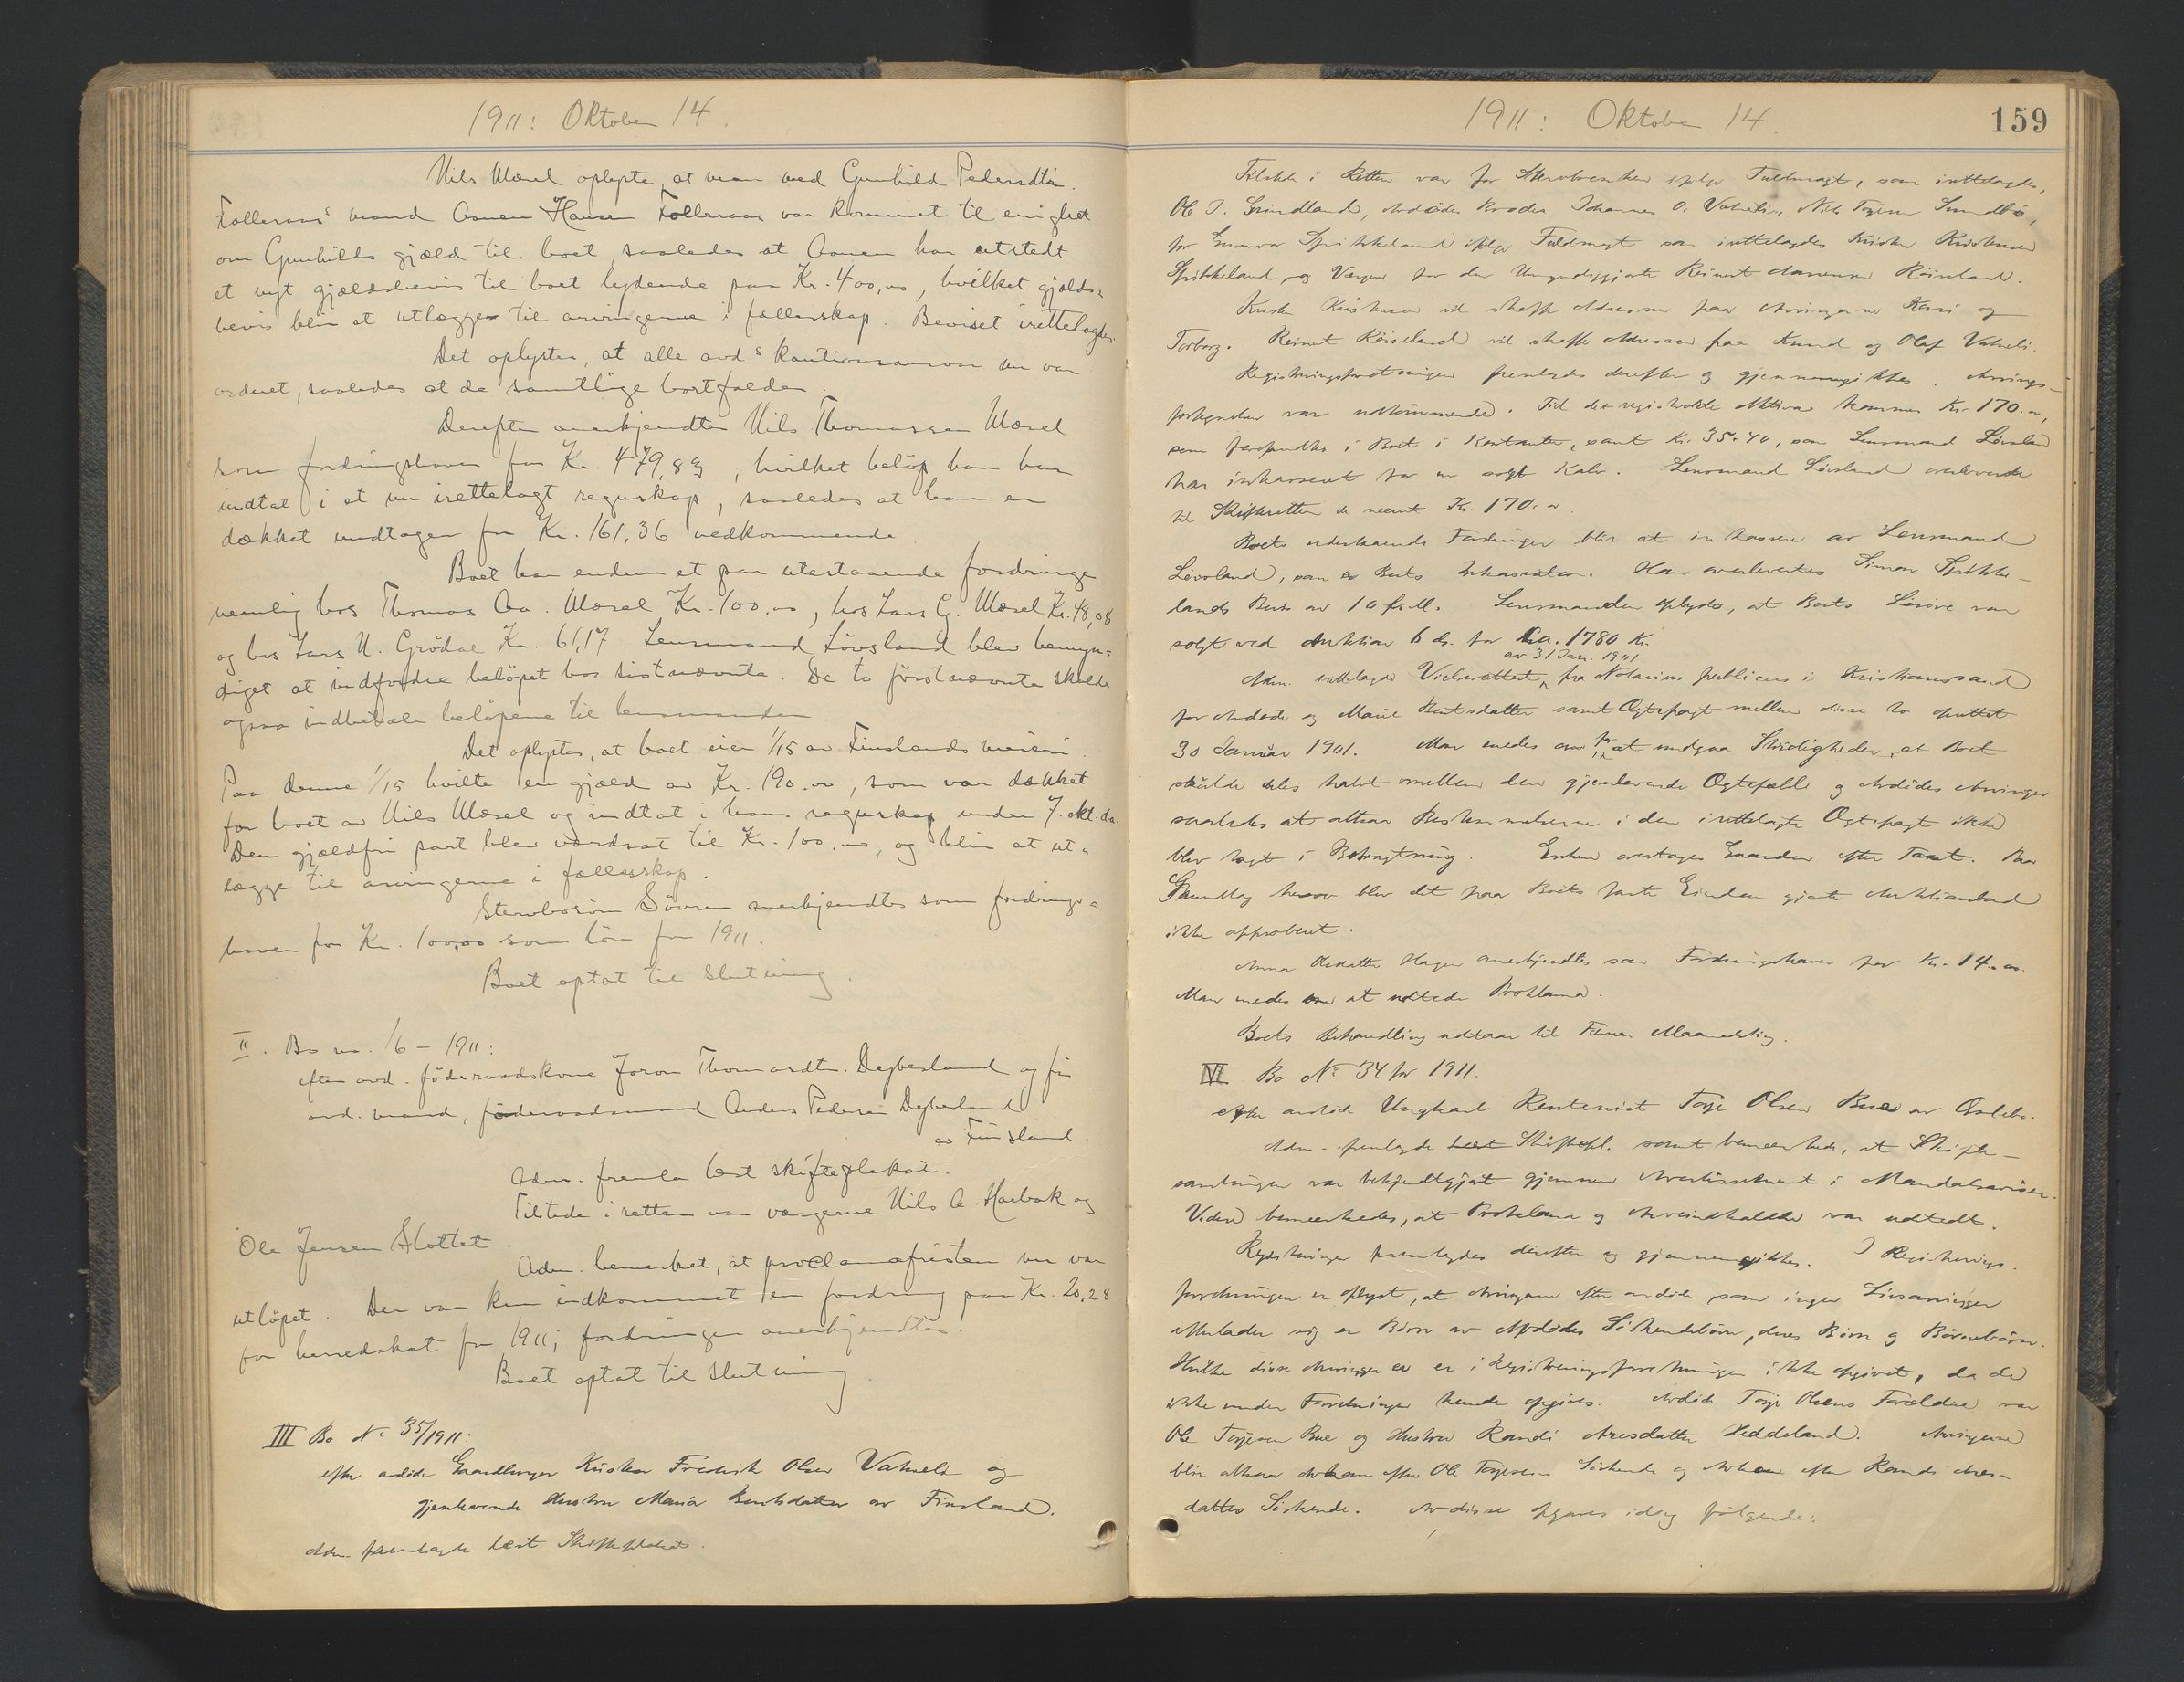 1911: Oktober 14.
Nils Mæsel oplyste, at man med Gunhild Pedersdtr.
Folleraas' mand Aanen Hansen Folleraas var kommet til enighet
om Gunhilds gjæld til boet, saaledes at Aanen har utstedt
et nyt gjældsbevis til boet lydende paa Kr. 400,00, hvilket gjælds-
bevis blir at utlægge til arvingerne i fællesskap. Beviset irettelagdes.
Det oplystes, at alle avds kautionsansvar nu var
ordnet, saaledes at de samtlige bortfalder.
Derefter anerkjendtes Nils Thomassen Mæsel
som fordringshaver for Kr. 479,83, hvilket beløp han har
indtat i et nu irettelagt regnskap, saaledes at han er
dækket undtagen for Kr. 161,36 vedkommende.
Boet har endnu et par utestaaende fordringer
nemlig hos Thomas Aa. Mæsel Kr. 100.00, hos Lars G. Mæsel Kr. 48,08
og hos Lars N. Grödae Kr. 61,17. Lensmand Løvsland blev bemyn-
diget at indfordre beløpet hos sistnævnte. De to førstnævnte skulde
ogsaa indbetale beløpene til lensmanden
Det oplystes, at boet eier 1/15 av Finslands meieri
Paa denne 1/15 hvilte en gjæld av Kr. 190.00, som var dækket
for boet av Nils Mæsel og indtat i hans regnskap under 7. okt. ds.
Den gjældfri part blev værdsat til Kr. 100.00, og blir at ut-
lægge til arvingerne i fællesskap.
Stervbosøn Sövrin anerkjendtes som fordrings-
haver for Kr. 100,00 som løn for 1911.
Boet optat til slutning.
II. Bo no. 16 - 1911:
efter avd. føderaadskone Joron Thomasdtr. Degbesland og før
avd. mand, føderaadsmand Anders Pedersen Degbesland
av Finsland.
Adm. fremla læst skifteplakat.
Tilstede i retten var værgerne Nils A. Harbak og
Ole Jensen Slottet.
Adm. bemerket, at proclamafristen nu var
utløpet. Der var kun indkommet en fordring paa Kr. 20,28
for herredskat for 1911; fordringen anerkjendtes.
Boet optat til slutning.
III Bo No 35/1911:
efter avdøde Gaardbruger Kristen Fredrik Olsen Vatneli og
gjenlevende Hustru Maria Bentsdatter av Finsland.
Adm. fremlagde læst Skifteplakat.
1911: Oktober 14.
159
Tilstede i Retten var for Stervboenken ifølge Fuldmagt, som irettelagdes,
Ole J. Grindland, Avdødes Broder Johannes O. Vatneli, Nils Tørresen Sundbø,
for Gunvor Sprikkeland ifølge Fuldmagt som irettelagdes Kristen Kristensen
Sprikkeland, og Værgen for den Umyndiggjorte Reinert Røiseland.
Kristen Kristensen vil skaffe Adresser paa Arvingerne og
Torborg. Reinert Röiseland vil skaffe Adresser paa Knud og Olaf Vatneli.
Registreringsforretningen fremlagdes derefter og gjennemgikkes. Arvings-
fortegnelsen var udtømmende. Til det registrerte Aktiva kommer Kr. 170.00,
som forefandtes i Boet i Kontanter, samt Kr. 35.40, som Lensmand Løvsland
har inkasseret for en solgt Kalv. Lensmand Løvsland overleverede
til Skifteretten de nævnte Kr. 170.00.
Boets udestaaende Fordringer blir at inkassere av Lensmand
Løvsland, som er Boets Inkassator. Han overlevertes Simon Sprikke-
lands Bevis av 10 f.M. Lensmanden oplyste, at Boets Løsøre var
solgt ved Auktion 6 ds. for ca. 1780 Kr.
av 31 Jan. 1901
Adm. irettelagde Vielsesattest fra Notarius publicus i Kristianssand
for Avdøde og Marie Bentsdatter samt Ægtepagt mellem disse to oprettet
30 Januar 1901. Man enedes om for at undgaa Stridigheder, at Boet
skulde deles halvt mellem den gjenlevende Ægtefælle og Avdødes Arvinger
saaledes at altsaa Bestemmelserne i den irettelagte Ægtepagt ikke
blev tagt i Betragtning. Enken overtager Gaarden efter Takst. Paa
Grundlag herav blev det paa Boets faste Eiendom gjorte Auktionsbud
ikke approberet.
Anna Olsdatter Hagen anerkjendtes som Fordringshaver for Kr. 14.00.
Man enedes om at udstede Proklama.
Boets Behandling udstaar til Maanedsting.
IV Bo No 34 for 1911.
efter avdøde Ungkarl Rentenist Terje Olsen Bue av Øislebø.
Adm. fremlagde læst Skiftepl. samt bemerkede, at Skifte-
samlingen var bekjendtgjort gjennem Avertissement i Mandalsavisen.
Videre bemerkedes, at Proklama og Arveindkaldelse var udstedt.
Registreringen fremlagdes derefter og gjennemgikkes. I Registrerings-
forretningen er oplyst, at Arvingerne efter avdøde som ingen Livsarvinger
efterlader sig er Børn av Afdødes Søskendebørn, deres Børn og Børnebørn.
Hvilke disse Arvinger er er i Registreringsforretningen ikke opgivet, da de
ikke under Forretningen kunde opgives. Avdøde Terje Olsens Forældre var
Ole Terjesen Bue og Hustru Randi Aresdatter Heddeland. Arvingerne
blir altsaa Avkom efter Ole Terjesens Søskende og Avkom efter Randi Ares-
datters Søskende. Av disse opgaves idag følgende: